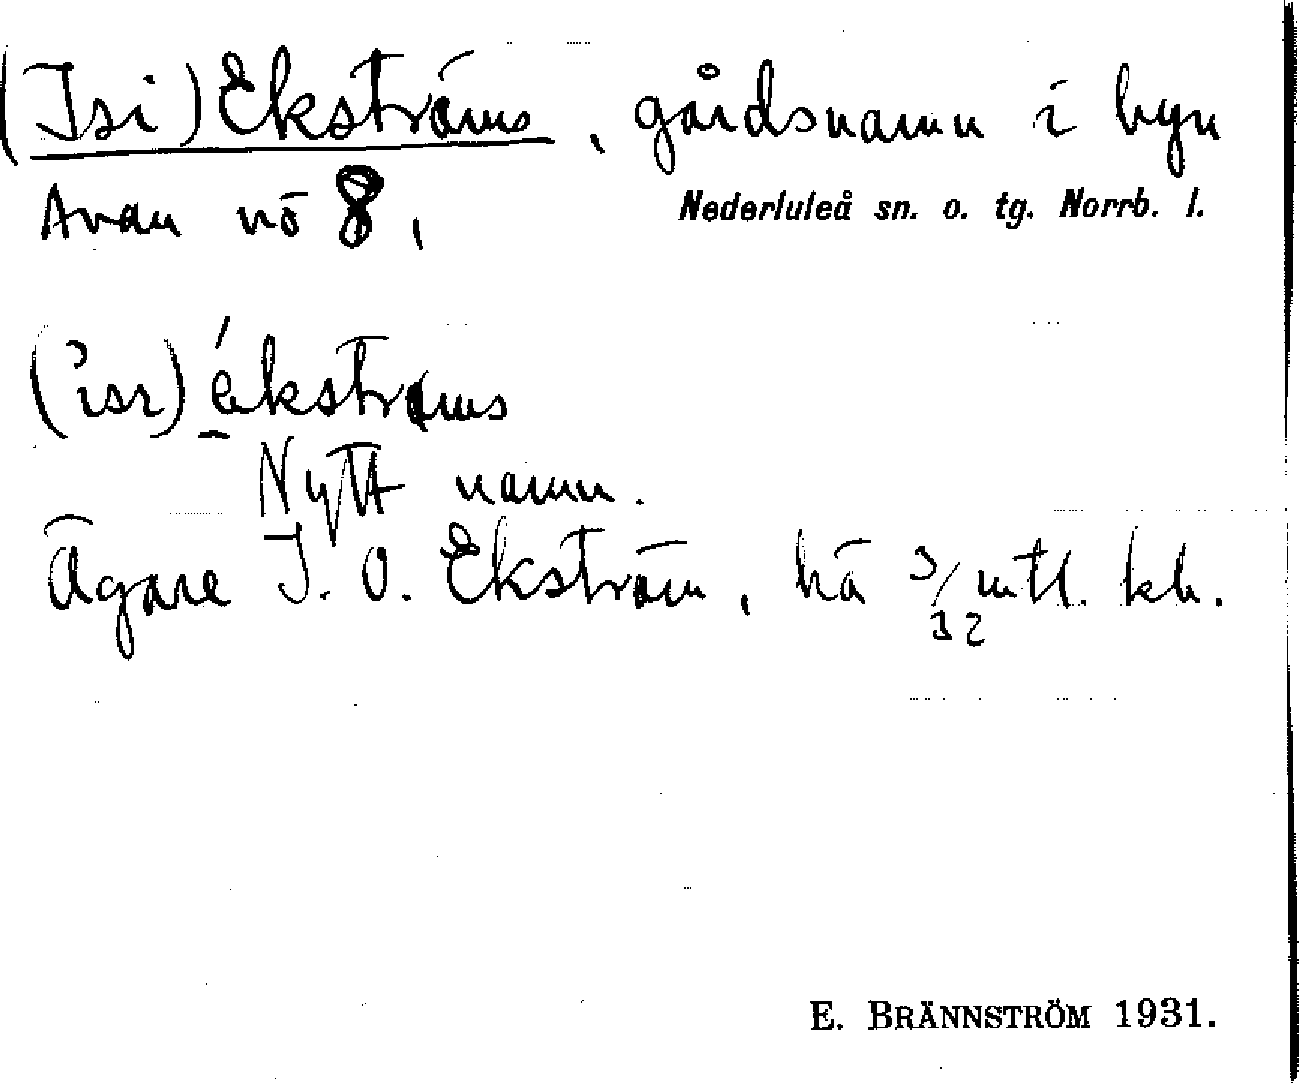 (Isi) Ekströms, gårdsnamn i byn
Avan nö 8,
Nederluleå sn. o. tg. Norrb. l.
(isi) ékströms
Nytt namn.
Ägare I. O. Ekström, hä 3/32 mtl. kh.
E. BRÄNNSTRÖM 1931.